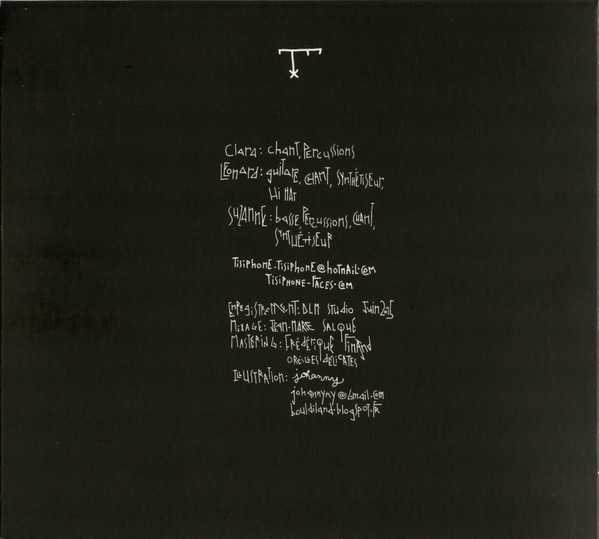 Clara: chant, Percussions
Léonard: guitare, CHANT, SYNTHÉTISEUR,
Hi HAT
SUZANNE: basse, Percussions, CHANT,
SYNTHÉTiSEUR
TisiphonE.TisiphonE@hotmAil.com
TisiphonE-FACES.com
EnregistrEMENT: DLM Studio Juin
MiXAGE: JEAN-MARC SALQUE
MASTERiNG: FRÉDÉRiQUE
OREillES DÉliCATES
IllUSTRATiON: johanny
johannyny@Gmail.com
bouldiland.blogspot.FR